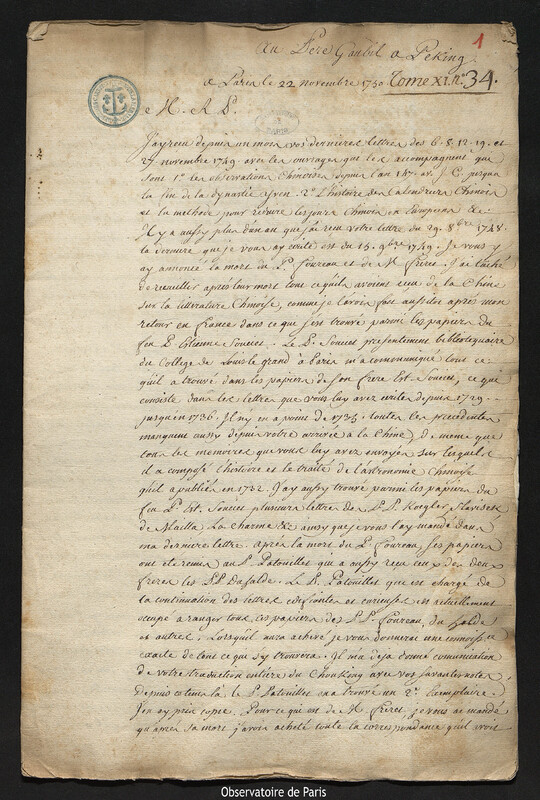 Au Pere Gaubil a Peking
1
a Paris le 22 novembre 1750 Tome XI. n.o 34.
M. R. P.
J'ay receu depuis un mois vos dernieres lettres des 6. 8. 12. 19. et
27 novembre 1749. avec les ouvrages qui les accompagnent qui
sont 1.o les observations Chinoises depuis l'an 147. av. J. C. jusqu'a
la fin de la dynastie Yven. 2.o l'histoire des Calendriers Chinois
et la methode pour reduire les jours Chinois en Européan &c.
Il y a aussy plus d'un an que j'ai receu votre lettre du 29. 8bre 1748.
la derniere que je vous ay ecrite est du 15. 9bre 1749. Je vous y
ay annoncé la mort du P. Foureau et de M. freret. J'ai taché
de recueillir apres leur mort tout ce qu'ils avoient eu de la Chine
sur la litterature Chinoise, comme je l'avois fait aussitôt après mon
retour en france dans ce qui s'est trouvé parmi les papiers du
feu P. Etienne Souciet. Le P. Souciet presentement bibliotequaire
du College de Louis le grand à Paris m'a communiqué tout ce
qu'il a trouvé dans les papiers de son frere Et. Souciet, ce qui
consiste dans les lettres que vous luy avez ecrites depuis 1729.
jusqu'en 1736. Il n'y en a point de 1735. toutes les precedentes
manquent aussy depuis votre arrivée a la Chine, de meme que
tous les memoires que vous luy avez envoyés sur lesquels
il a composé l'histoire et le traité de l'astronomie Chinoise
qu'il a publié en 1732. J'ay aussy trouvé parmi les papiers du
feu P. Et. Souciet plusieurs lettres des P. P. Koegler, Slaviseck
de Mailla La Charme &c ainsy que je vous l'ay mandé dans
ma derniere lettre. Après la mort du P. Foureau, ses papiers
ont eté remis au P. Patouillet qui a aussy receu ceux des deux
freres les PP. Duhalde. Le P. Patouillet qui est chargé de
la continuation des lettres edifiantes et curieuses est actuellement
occupé a ranger tous ces papiers des P. P. Foureau, du halde
et autres. Lorsqu'il aura achevé je vous donnerai une connoissance
exacte de tout ce qui s'y trouvera. Il m'a deja donné communication
de votre traduction entiere du Chouking avec vos savantes notes.
Depuis ce tems la le P. Patouillet en a trouvé un 2.e Exemplaire.
J'en ay pris copie. Pour ce qui est de M. freret, je vous ai mandé
qu'après sa mort j'avois acheté toute la correspondance qu'il avoit
Observatoire de Paris